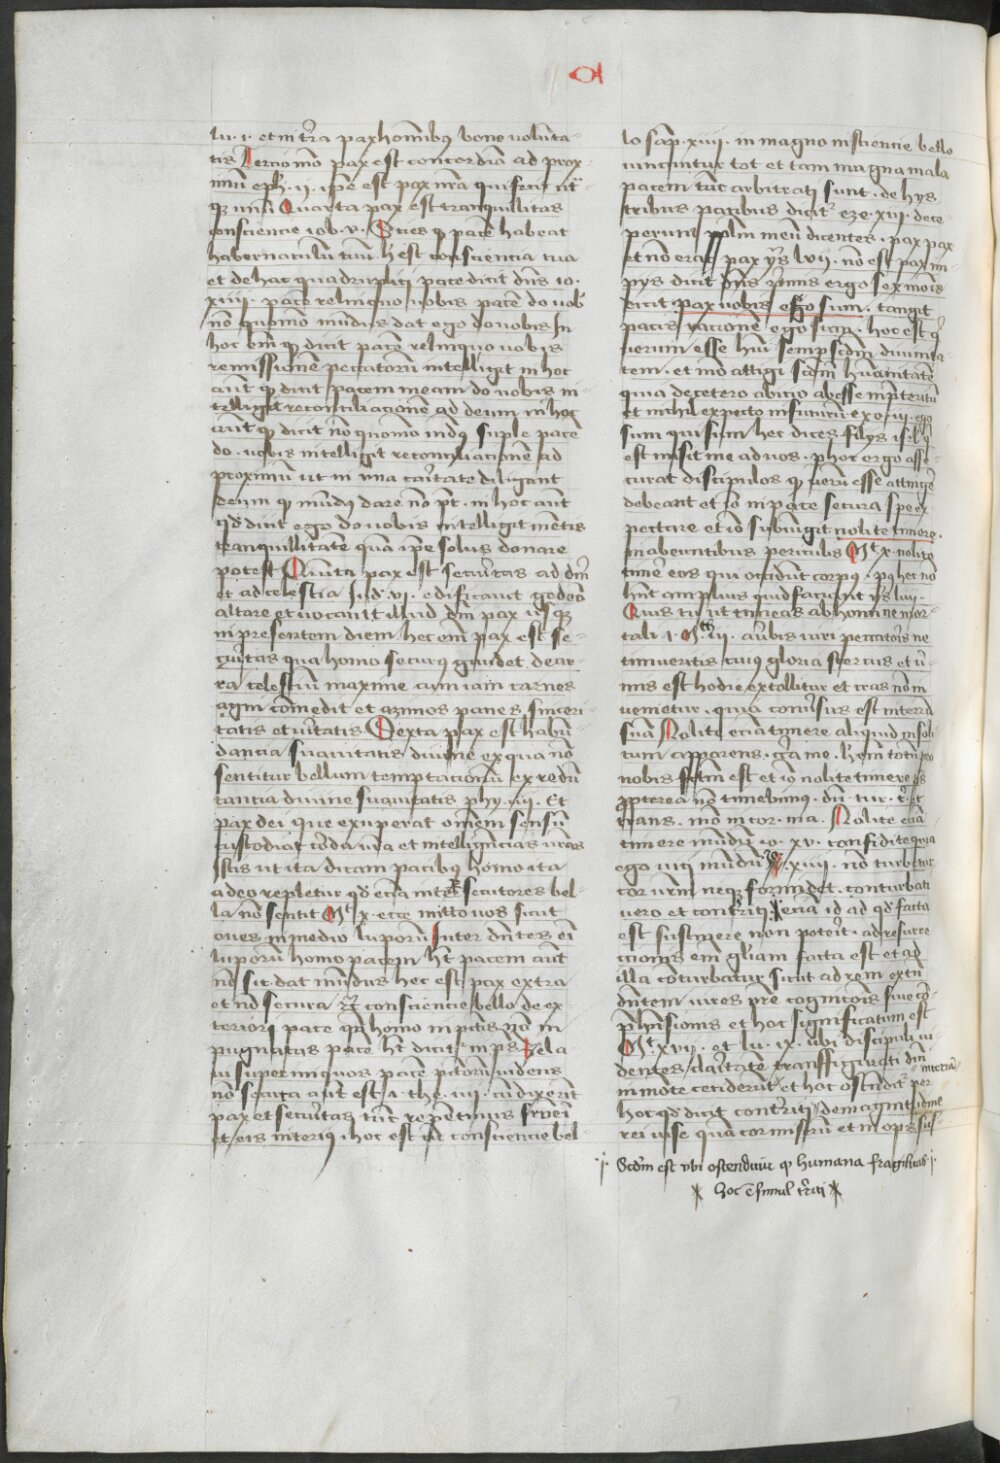 lu · i · et in t̄ra pax homībus bone volūta-
tis Tercio mō pax est concordia ad prox-
imū eph · ii · ip̄e est pax nr̄a qui fecit vt̄-
qȝ unū Quarta pax est tranquillitas
consciencie iob · v · Scies qp pacē habeat
habernaculū tuū h̄ est consciencia tua
et de hac quadruplici pace dicit dn̄s io ·
xiiii · pacē relinquo vobis pacē do vob̄
nō quomō mūdus dat ego do vobis In
hoc em̄ qp dicit pacē relinquo vobis
remissionē peccatorū intelligit in hoc
aūt qp dicit pacem meam do vobis in-
telligit reconciliacionē ad deum in hoc
aūt qp dicit nō quomō mūdꝰ suple pacē
do · vobis intelligit reconciliacionē ad
proximū ut in una caritate diligant
deum qp mūdꝰ dare nō pt̄ · in hoc aūt
qd̄ dicit ego do vobis intelligit mētis
tranquillitatē quā ip̄e solus donare
potest Quinta pax est securitas ad dn̄i
et ad celestia Jud · vi · edificauit gedeon
altare et vocauit illud dn̄i pax usqȝ
in presentem diem hec em̄ pax est se-
curitas qua homo securꝰ gaudet de cu-
ra celestiū maxime cum iam carnes
agni cōmedit et azimos panes sinceri-
tatis et ūitatis Sexta pax est habū-
dancia suauitatis diuine ex qua nō
sentitur bellum temptacionū ex redū-
tantia diuine suauitatis phy · iiii · Et
pax dei que exuperat omnem sensū
custodiat corda vr̄a et intelligencias vr̄as
Istis ut ita dicam pacibus homo ita
adeo repletur qd̄ ecia int̄ psecutores bel-
la nō sentit Mt · x · ecce mitto vos sicut
oues in medio luporū Inter dn̄tes ei
luporū homo pacem ht̄ pacem aūt
nō sic dat mūdus hec est pax extra
et nō secura cū consciencie bello de ex-
teriori pace qm̄ homo in pctis nō in-
pugnatus pacē ht̄ dicitur in ps Zela-
ui super iniquos pacē pctorū videns
nō secura aūt est · i · the · iiii · cū dixerīt
pax et securitas tūc repentinus supueīet
et eis interitꝰ · hoc est ut consciencie bel
lo sap · xiiii · in magno insciencie bello
viuentur tot et tam magna mala
pacem tūc arbitrati sunt · de hys
tribus pacibus dicit̄ eze · xiii · dece-
perunt pplm meū dicentes · pax pax
et nō erat pax ys lvii · nō est pax im-
pys dicit dn̄s primis ergo sex modis
dicit pax vobis ego sum · tangit
pacis racionē ego sum · hoc est qp
uerum esse hui semp scdm diuinita-
tem · et mō attigi scdm hūanitatē
quia de cetero abitio abesse in p̄teritū
et nichil expecto in futurū exo · iii · ego
sum qui sum hec dices filys isrl qui
est misit me ad vos · p hoc ergo asse-
curat discipulos qp uerū esse attingē
debeant et sō in pace secura spe ex-
pectare et iō subiūgit nolite timere ·
in aduentibus periculis Mt x · nolite
timē eos qui occidūt corpꝰ · pꝰ hec nō
hn̄t amplius quid faciant ys li ·
Quis tu ut timeas ab homine mor-
tali · i · Mch ii · a verbis viri peccatoris ne
timueritis cuius gloria stercus et v̄-
mis est hodie extollitur et cras nō in-
uenietur · quia conūsus est in terrā
suā Nolite ecia timere aliquid insoli-
tum apparens · circa me · hem totū pro
nobis factū est et iō nolite timere ps
propterea nō timebimus · dū · tur · t̄ · et
trans · mō in cor · ma · Nolite eciā
timere mūdū io · xv · confidite quia
ego vici mūdū Io · xiiii · nō turbetur
cor vrm neqȝ formidet · conturbati
uero et conterriti ecia id ad qd̄ facta
est sustinere non poterit · ad resurre-
ctionis em̄ gl̄iam facta est et ad
illa conturbatur sicut ad rem exten-
dn̄tem vires pre cognitois siue cō-
prehn̄sionis et hoc significatum est
Mt · xvii · et lu · ix · ubi discipuli vi-
dentes claritatē transfigurati dn̄i
in mōte ceciderūt et hoc ostēdit̄ per
hoc qd̄ dicit conterriti de magnitudine
rei vise quā cor miserū et inops sus-
· i · Scdm est vbi ostenditur qp humana fragilitas · i ·
hoc ē simul t̄riti